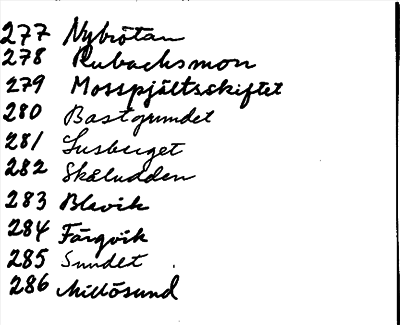 277 Nybrötan
278 Rubacksmon
279 Mosspjältsskiftet
280 Bastgrundet
281 Lusberget
282 Skåludden
283 Blevik
284 Färgvik
285 Sundet
286 Millösund